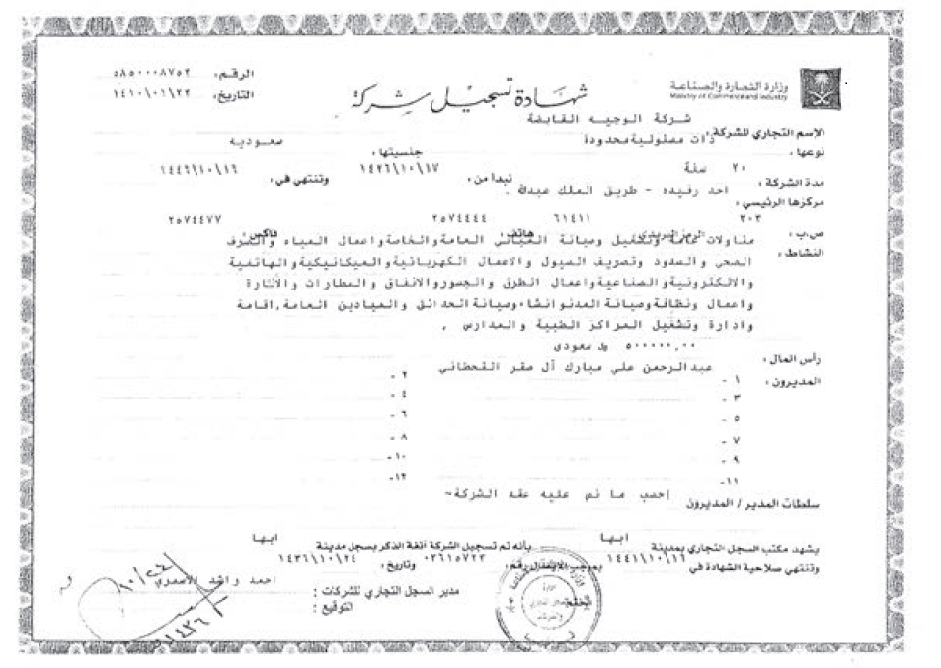 وزارة التجارة والصناعة
Ministry of Commerce and Industry
شهادة تسجيل شركة
الرقم: ٥٨٥٠٠٠٨٧٥٢
التاريخ: ١٤١٠/٠١/٢٢
الإسم التجاري للشركة: شركة الوجيه القابضة
نوعها: ذات مسئولية محدودة جنسيتها: سعودية
مدة الشركة: ٢٠ سنة تبدأ من: ١٤٢٦/١٠/١٧ وتنتهي في: ١٤٤٦/١٠/١٦
مركزها الرئيسي: احد رفيده - طريق الملك عبدالله .
ص.ب: ٢٠٣ الرمز البريدي: ٦١٤١١ هاتف: ٢٥٧٤٤٤٤ فاكس: ٢٥٧٤٤٧٧
النشاط: مقاولات عامة وتشغيل وصيانة المباني العامة والخاصة واعمال المياه والصرف
الصحي والسدود وتصريف السيول والاعمال الكهربائية والميكانيكية والهاتفية
والالكترونية والصناعية واعمال الطرق والجسور والانفاق والمطارات والانارة
واعمال ونظافة وصيانة المدن وانشاء وصيانة الحدائق والميادين العامة ,اقامة
وادارة وتشغيل المراكز الطبية والمدارس .
رأس المال: ٥٠٠٠٠٠,٠٠ ريال سعودى
المديرون: ١ - عبدالرحمن علي مبارك آل صقر القحطاني ٢ -
٣ - ٤ -
٥ - ٦ -
٧ - ٨ -
٩ - ١٠ -
١١ - ١٢ -
سلطات المدير / المديرون حسب ما نص عليه عقد الشركة
يشهد مكتب السجل التجاري بمدينة ابها بأنه تم تسجيل الشركة آنفة الذكر بسجل مدينة ابها
وتنتهي صلاحية الشهادة في ١٤٤١/١٠/١٦ بموجب الايصال رقم: ٠٣٦١٥٧٢٣ وتاريخ: ١٤٣٦/١٠/٢٤
مدير السجل التجاري للشركات: احمد راشد الاسمري
التوقيع:
الختم